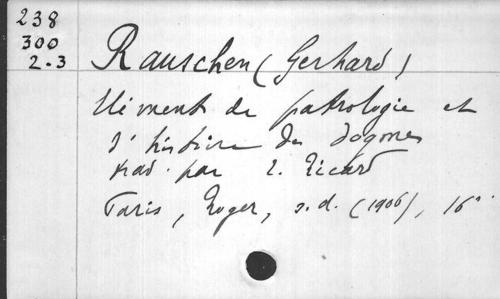 238
300
2.3
Rauschen (Gerhard)
Eléments de patrologie et
d'histoire des dogmes
trad. par E. Ricard
Paris, Roger, s.d. (1906), 16°.